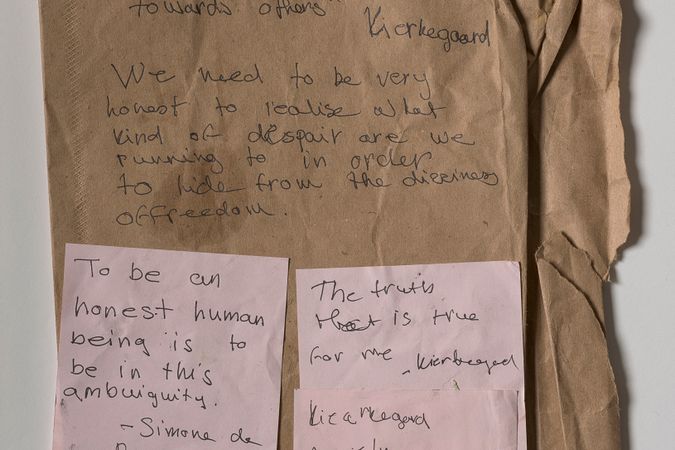 towards others"
Kierkegaard
We need to be very
honest to realise what
kind of despair are we
running to in order
to hide from the dizziness
of freedom.
To be an
honest human
being is to
be in this
ambuiguity.
- Simone de
The truth
that is true
for me - Kierkegaard
Kierkegard